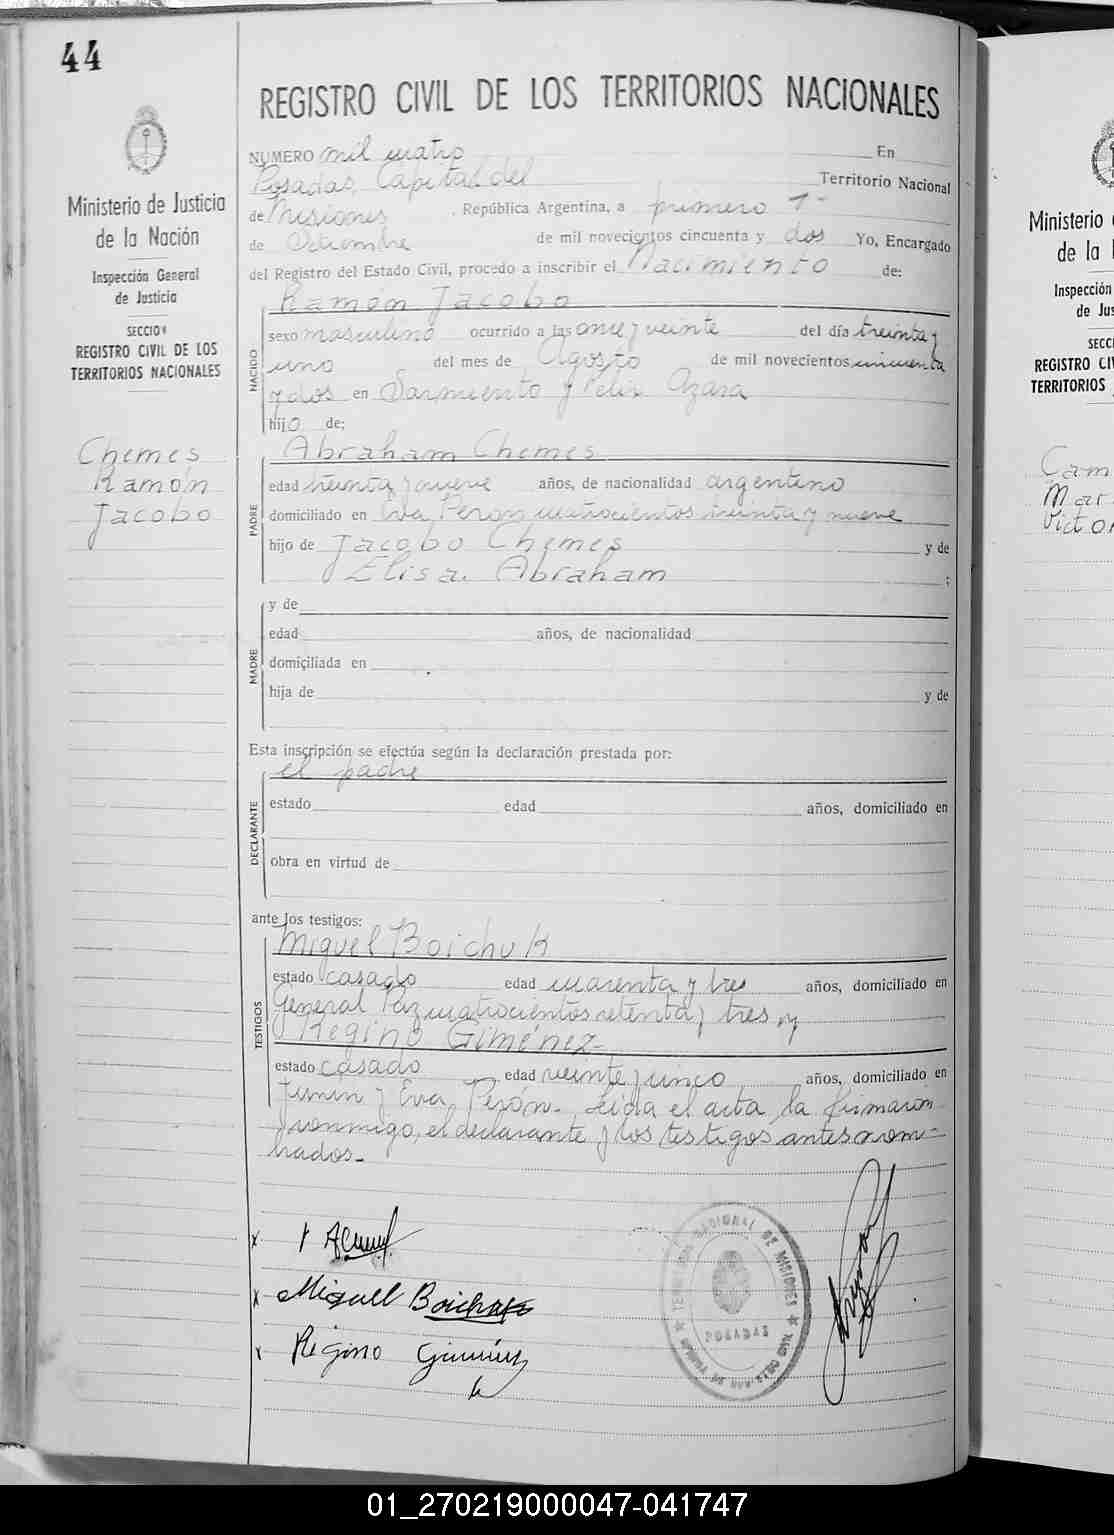 44
REGISTRO CIVIL DE LOS TERRITORIOS NACIONALES
Ministerio de Justicia
de la Nación
Inspección General
de Justicia
SECCION
REGISTRO CIVIL DE LOS
TERRITORIOS NACIONALES
Chemes
Ramón
Jacobo
NUMERO mil cuatro En
Posadas, Capital del Territorio Nacional
de Misiones República Argentina, a primero 1-
de Setiembre de mil novecientos cincuenta y dos Yo, Encargado
del Registro del Estado Civil, procedo a inscribir el Nacimiento de:
NACIDO
Ramón Jacobo
sexo masculino ocurrido a las once y veinte del día treinta y
uno del mes de Agosto de mil novecientos cincuenta
y dos en Sarmiento y Felix Azara
hijo de:
PADRE
Abraham Chemes
edad treinta y nueve años, de nacionalidad argentino
domiciliado en Eva Peron cuatrocientos treinta y nueve
hijo de Jacobo Chemes y de
Elisa Abraham ;
MADRE
y de
edad años, de nacionalidad
domiciliada en
hija de y de
Esta inscripción se efectúa según la declaración prestada por:
DECLARANTE
el padre
estado edad años, domiciliado en
obra en virtud de
ante los testigos:
TESTIGOS
Miguel Boichuk
estado casado edad cuarenta y tres años, domiciliado en
General Paz cuatrocientos setenta y tres y
Regino Giménez-
estado casado edad veinte y cinco años, domiciliado en
Junin y Eva Perón. Leida el acta la firmaron
conmigo, el declarante y los testigos antes nom-
brados.-
x
x Miguel Boichuk
x Regino Giménez
TERRITORIO NACIONAL DE MISIONES
POSADAS
OFICINA DE REGISTRO CIVIL
Ministerio
de la
Inspección
de Jus
SECC
REGISTRO CIV
TERRITORIOS
Cam
Mar
Victor
01_270219000047-041747